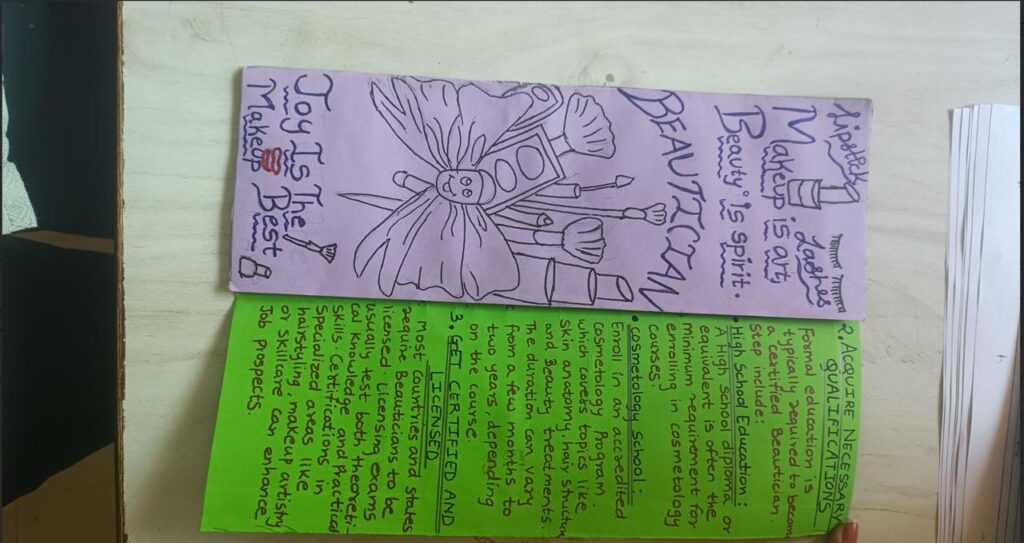 Lipstick
Lashes
Makeup is art,
Beauty is spirit.
BEAUTICIAN
Joy Is The
Makeup Best
2. ACQUIRE NECESSARY
QUALIFICATIONS
Formal education is
typically required to become
a certified Beautician.
Step include:
• High School Education:
A High school diploma or
equivalent is often the
minimum requirement for
enrolling in cosmetology
courses.
• Cosmetology School:-
Enroll in an accredited
cosmetology Program
which covers topics like
Skin anatomy, hair structure
and Beauty treatments.
The duration can vary
from a few months to
two years, depending
on the course.
3. GET CERTIFIED AND
LICENSED
. Most countries and states
require Beauticians to be
licensed. Licensing exams
usually test both theoreti-
cal knowledge and Practical
skills. Certifications in
Specialized areas like
hairstyling, makeup artistry
or skillcare can enhance
Job prospects.